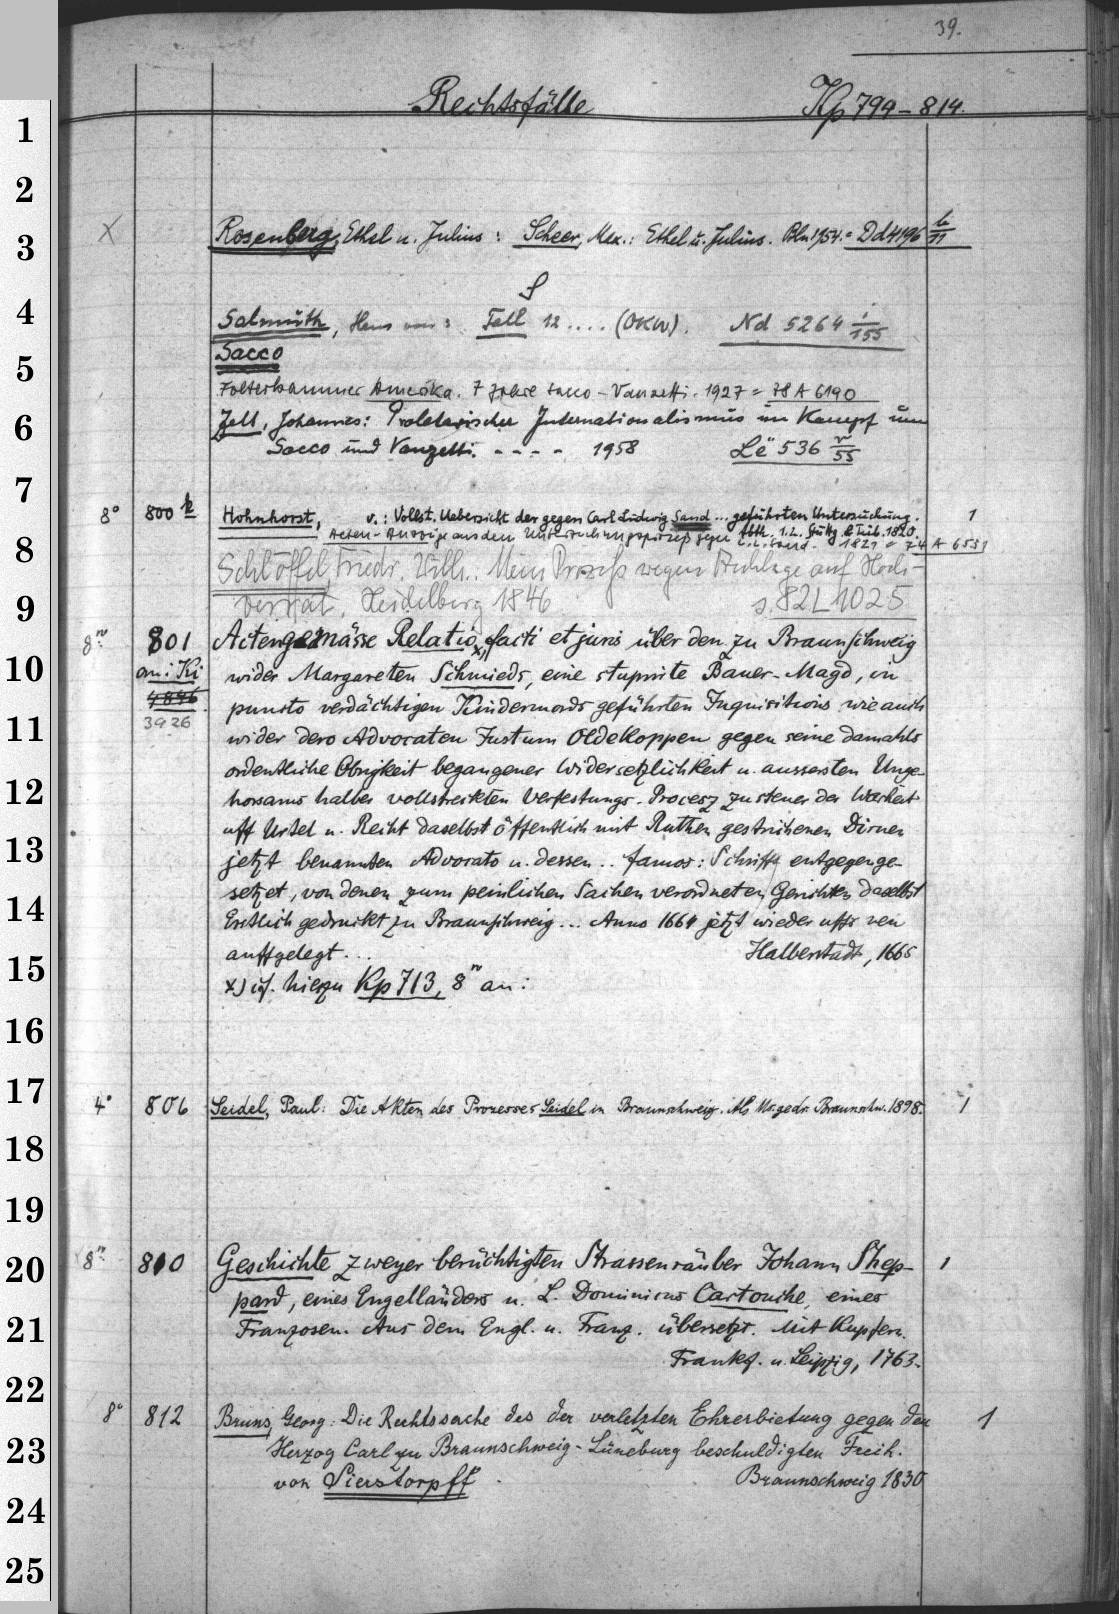 39.
Rechtsfälle Kp 799-814.
1
2
3
X Rosenberg, Ethel u. Julius: Scheer, Max.: Ethel u. Julius. Bln 1954. = Dd 4196 b/71
S
4
Salmuth, Hans von: Fall 12 .... (OKW). Nd 5264 i/155
Sacco
5
Folterkammer Amerika. 7 Jahre Sacco-Vanzetti. 1927 = 78 A 6190
6
Zelt, Johannes: Proletarischer Internationalismus im Kampf um
Sacco und Vanzetti. - - - - 1958 Lë 536 r/55
7
8° 800 k Hohnhorst, v.: Vollst. Uebersicht der gegen Carl Ludwig Sand ... geführten Untersuchung. 1
Abth. 1.2. Stuttg. & Tüb. 1820.
Acten-Auszüge aus dem Untersuchungsprozeß gegen C. L. Sand. 1821 = 74 A 6551
8
Schlöffel, Friedr. Wilh.: Mein Prozeß wegen Anklage auf Hoch-
9
verrat. Heidelberg 1846 s. 82 L 1025
8° 801 Actengemässe Relatio x) facti et juris über den zu Braunschweig
10
an: Ki wider Margareten Schmieds, eine stuprirte Bauer-Magd, in
4846
puncto verdächtigen Kindermords geführten Inquisitions wie auch
3926
11
wider dero Advocaten Justum Oldekoppen gegen seine damahls
ordentliche Obrigkeit begangener Widersetzlichkeit u. aussersten Unge-
12
horsams halber vollstreckten Verfestungs-Procesz zu steuer der Warheit
uff Urtel u. Recht daselbst öffentlich mit Ruthen gestrichenen Dirnen
13
jetzt benannten Advocato u. dessen .. famos: Schrifft entgegenge-
setzet, von denen zum peinlichen Sachen verordneten Gerichten daselbst
14
Erstlich gedruckt zu Braunschweig ... Anno 1664 jetzt wieder uffs neu
auffgelegt ... Halberstadt, 1665
15
x) cf. hierzu Kp 713, 8° an:
16
17
4° 806 Seidel, Paul: Die Akten des Prozesses Seidel in Braunschweig. Als Ms. gedr. Braunschw. 1898. 1
18
19
8° 810 Geschichte zweyer berüchtigten Strassenräuber Johann Shep- 1
20
pard, eines Engelländers u. L. Dominicus Cartouche, eines
21
Franzosen. Aus dem Engl. u. Franz. übersetzt. Mit Kupfern.
Frankf. u. Leipzig, 1763.
22
8° 812 Bruns, Georg: Die Rechtssache des der verletzten Ehrerbietung gegen den 1
23
Herzog Carl zu Braunschweig-Lüneburg beschuldigten Freih.
von Sierstorpff. Braunschweig 1830
24
25